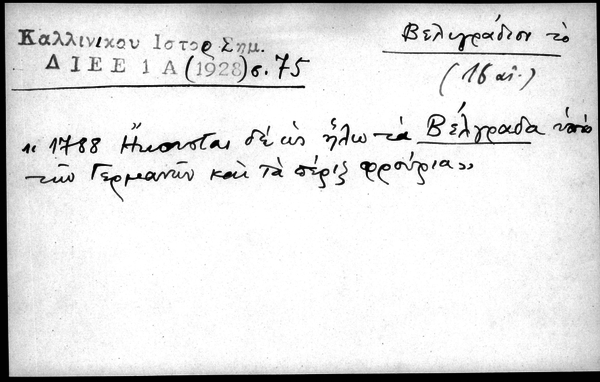 Καλλινικου Ιστορ Σημ.
ΔΙΕΕ 1 Α (1928) σ. 75
Βελιγράδισι τὸ
(16 αἰ.)
« 1788 Ἤκουσται δέ ὡς ἥλω τὰ Βέλγραδα ὑπὸ
τῶν Γερμανῶν καὶ τὰ πέριξ φρούρια»